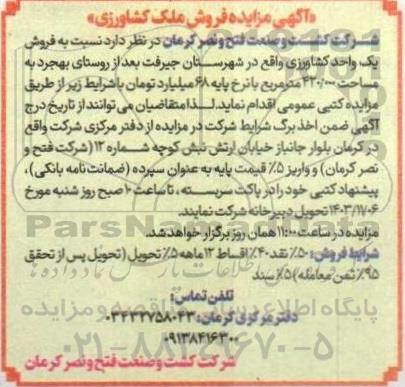 «آگهی مزایده فروش ملک کشاورزی»
شرکت کشت و صنعت فتح و نصر کرمان در نظر دارد نسبت به فروش
یک واحد کشاورزی واقع در شهرستان جیرفت بعد از روستای بهجرد به
مساحت ۴۲۰/۰۰۰ مترمربع با نرخ پایه ۶۸ میلیارد تومان با شرایط زیر از طریق
مزایده کتبی عمومی اقدام نماید. لذا متقاضیان می توانند از تاریخ درج
آگهی ضمن اخذ برگ شرایط شرکت در مزایده از دفتر مرکزی شرکت واقع
در کرمان بلوار جانباز خیابان ارتش نبش کوچه شماره ۱۲ (شرکت فتح و
نصر کرمان) و واریز ۵٪ قیمت پایه به عنوان سپرده (ضمانت نامه بانکی)،
پیشنهاد کتبی خود را در پاکت سربسته، تا ساعت ۱۰ صبح روز شنبه مورخ
۱۴۰۳/۱۷۰۶ تحویل دبیرخانه شرکت نمایند.
مزایده در ساعت ۱۱:۰۰ همان روز برگزار خواهد شد.
شرایط فروش: ۵۰٪ نقد ۴۰٪ اقساط ۱۲ ماهه ۵٪ تحویل (تحویل پس از تحقق
۹۵٪ ثمن معامله) ۵٪ سند
تلفن تماس:
دفتر مرکزی کرمان: ۰۳۴۳۲۷۵۸۰۴۳
۰۹۱۳۸۴۱۶۳۰۰
شرکت کشت و صنعت فتح و نصر کرمان
ParsNamadData
پایگاه اطلاع رسانی مناقصه و مزایده
۰۲۱-۸۸۳۴۹۶۷۰-۵